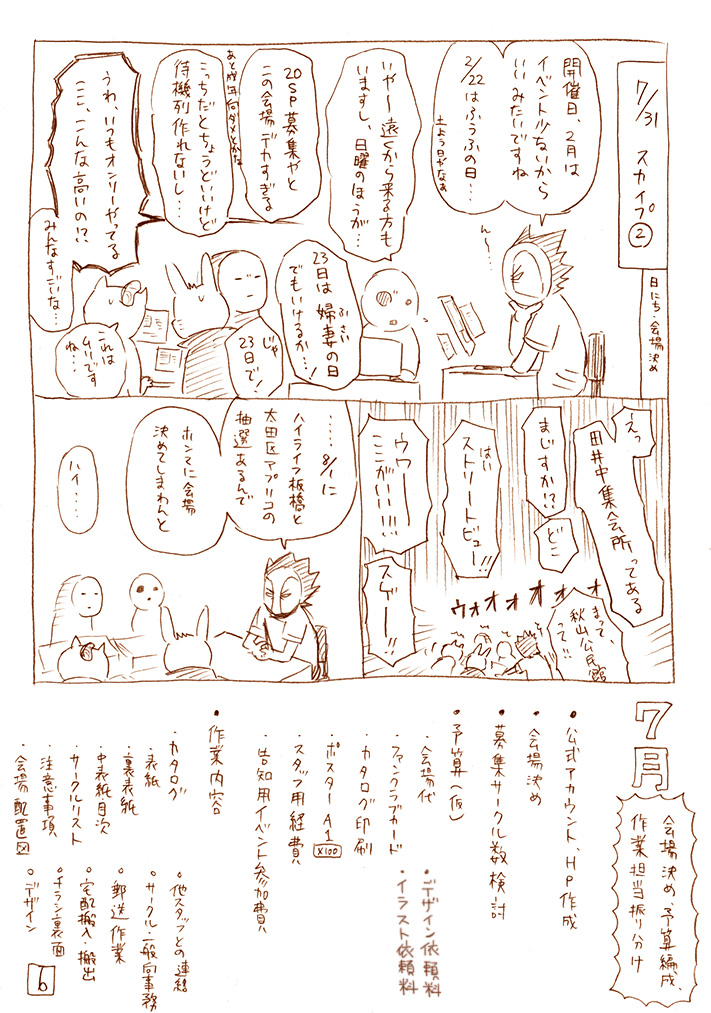 7/31 スカイプ②
日にち・会場決め
開催日、2月は
イベント少ないから
いいみたいですね
2/22はふうふの日…
土よう日やなぁ
ん〜…
いや〜遠くから来る方も
いますし、日曜のほうが…
23日は婦妻の日
ふさい
でもいけるか…!
じゃ
23日で!
20SP募集やと
この会場デカすぎる
あと成年向ダメとかな
こっちだとちょうどいいけど
待機列作れないし…
うわ、いつもオンリーやってる
ここ、こんな高いの!?
みんなすごいな…
これは
ムリです
ね…
えっ
田井中集会所ってある
まじすか!?
どこ
はい
ストリートビュー!!
ウワー
ここがいい!!!
スゲー!!
ウォォォォォォ
まって、
秋山公民館
って!!
……8/1に
ハイライフ板橋と
大田区アプリコの
抽選あるんで
ホンマに会場
決めてしまわんと
ハイ…
7月
会場決め、予算編成、
作業担当振り分け
・公式アカウント、HP作成
・会場決め
・募集サークル数検討
・予算(仮)
・会場代
・ファンクラブカード
・カタログ印刷
・ポスターA1 ×100
・スタッフ用経費
・告知用イベント参加費
・デザイン依頼料
・イラスト依頼料
・作業内容
・カタログ
・表紙
・裏表紙
・中表紙目次
・サークルリスト
・注意事項
・会場配置図
○他スタッフとの連絡
○サークル・一般向事務
○郵送作業
○宅配搬入・搬出
○チラシ裏面
○デザイン
6